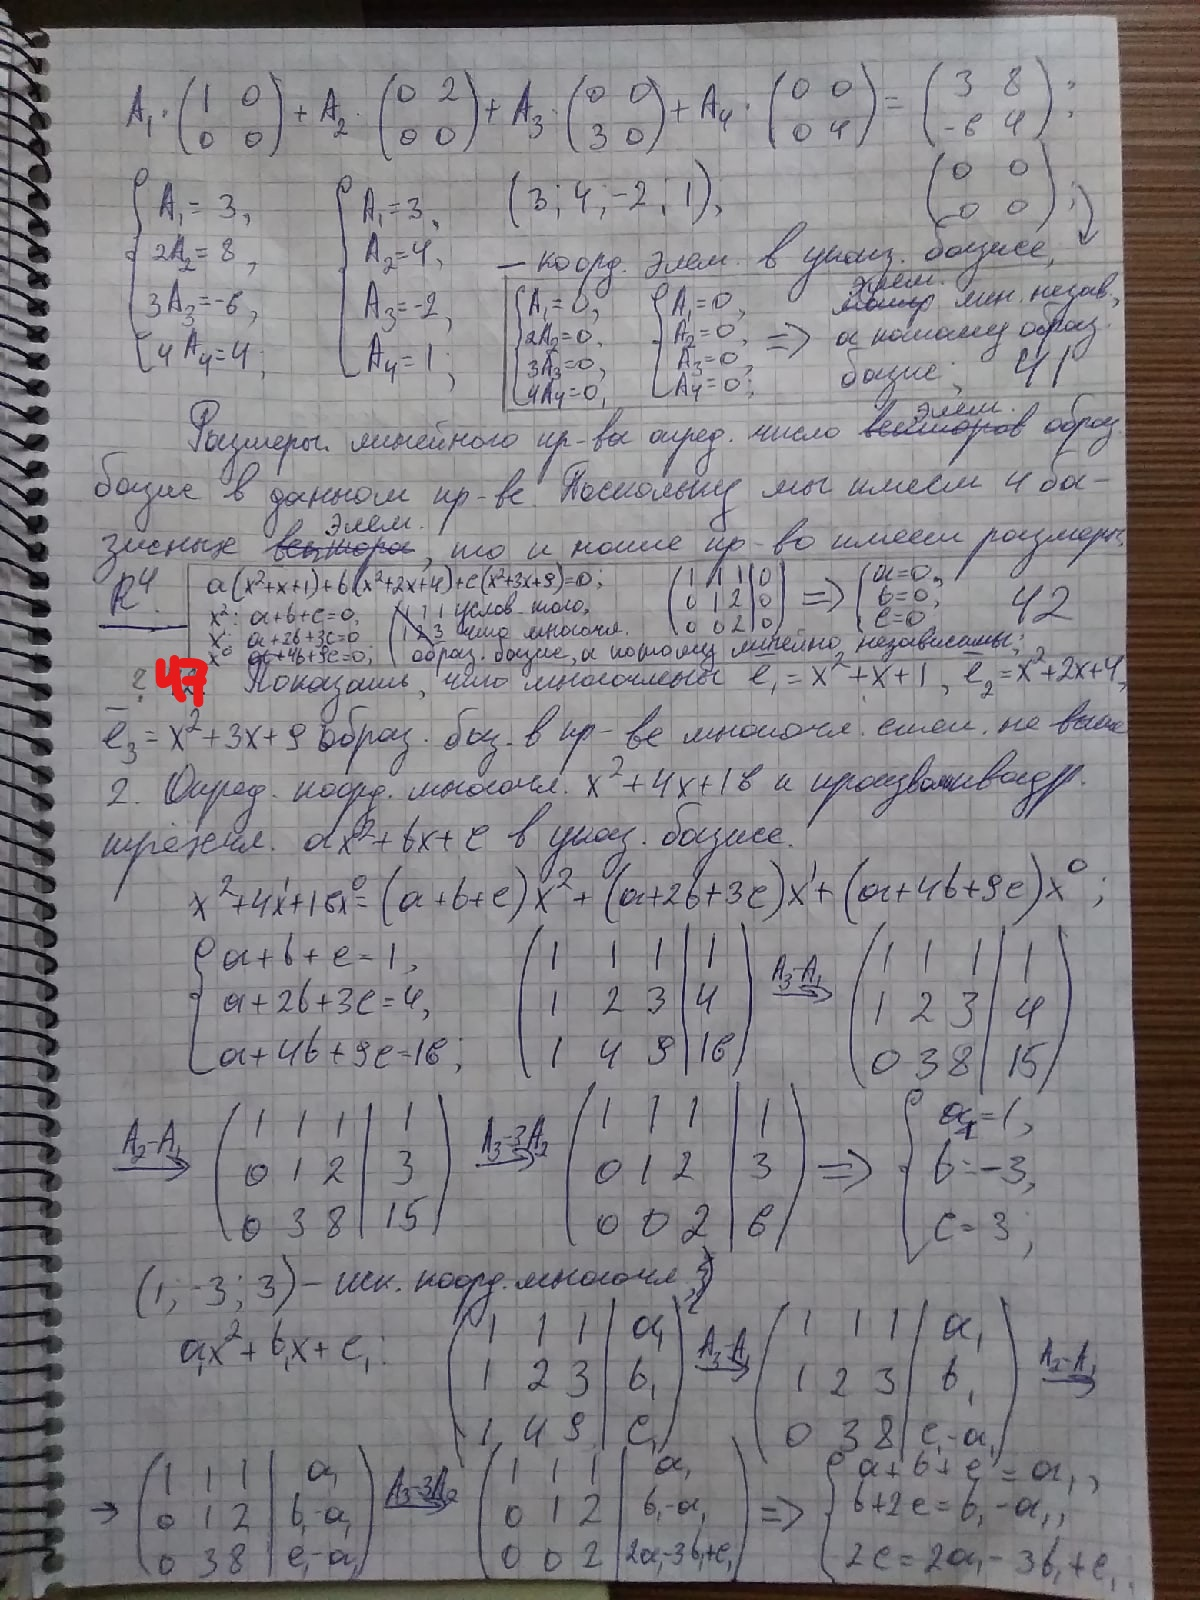 A₁·(1 0 / 0 0) + A₂·(0 2 / 0 0) + A₃·(0 0 / 3 0) + A₄·(0 0 / 0 4) = (3 8 / -6 4);
(0 0 / 0 0);
{A₁=3, 2A₂=8, 3A₃=-6, 4A₄=4; {A₁=3, A₂=4, A₃=-2, A₄=1; (3; 4; -2; 1),
– коорд. элем. в указ. базисе,
{A₁=0, 2A₂=0, 3A₃=0, 4A₄=0, {A₁=0, A₂=0, A₃=0, A₄=0; => элем. лин. незав,
а потому образ.
базис; 41
Размерн. линейного пр-ва опред. число элем. образ.
базис в данном пр-ве. Поскольку мы имеем 4 ба-
зисных элем., то и наше пр-во имеет размерн.
R⁴.
a(x²+x+1)+b(x²+2x+4)+c(x²+3x+9)=0;
x²: a+b+c=0,
x¹: a+2b+3c=0
x⁰ a+4b+9c=0;
(1 1 1 | 0 / 0 1 2 | 0 / 0 0 2 | 0) => {a=0, b=0, c=0, 42
услов. того,
что многочл.
образ. базис, а потому линейно независимы;
? 47 Показать, что многочлены e₁=x²+x+1, e₂=x²+2x+4,
e₃=x²+3x+9 образ. баз. в пр-ве многочл. степ. не выше
2. Опред. коорд. многочл. x²+4x+16 и
трёхчл. ax²+bx+c в указ. базисе.
x²+4x¹+16x⁰=(a+b+c)x²+(a+2b+3c)x¹+(a+4b+9c)x⁰;
{a+b+c=1, a+2b+3c=4, a+4b+9c=16; (1 1 1 | 1 / 1 2 3 | 4 / 1 4 9 | 16) A₃-A₁→ (1 1 1 | 1 / 1 2 3 | 4 / 0 3 8 | 15)
A₂-A₁→ (1 1 1 | 1 / 0 1 2 | 3 / 0 3 8 | 15) A₃-3A₂→ (1 1 1 | 1 / 0 1 2 | 3 / 0 0 2 | 6) => {a=1, b=-3, c=3;
(1; -3; 3) – иск. коорд. многочл.
a₁x²+b₁x+c₁: (1 1 1 | a₁ / 1 2 3 | b₁ / 1 4 9 | c₁) A₃-A₁→ (1 1 1 | a₁ / 1 2 3 | b₁ / 0 3 8 | c₁-a₁) A₂-A₁→
→ (1 1 1 | a₁ / 0 1 2 | b₁-a₁ / 0 3 8 | c₁-a₁) A₃-3A₂→ (1 1 1 | a₁ / 0 1 2 | b₁-a₁ / 0 0 2 | 2a₁-3b₁+c₁) => {a+b+c=a₁, b+2c=b₁-a₁, 2c=2a₁-3b₁+c₁.